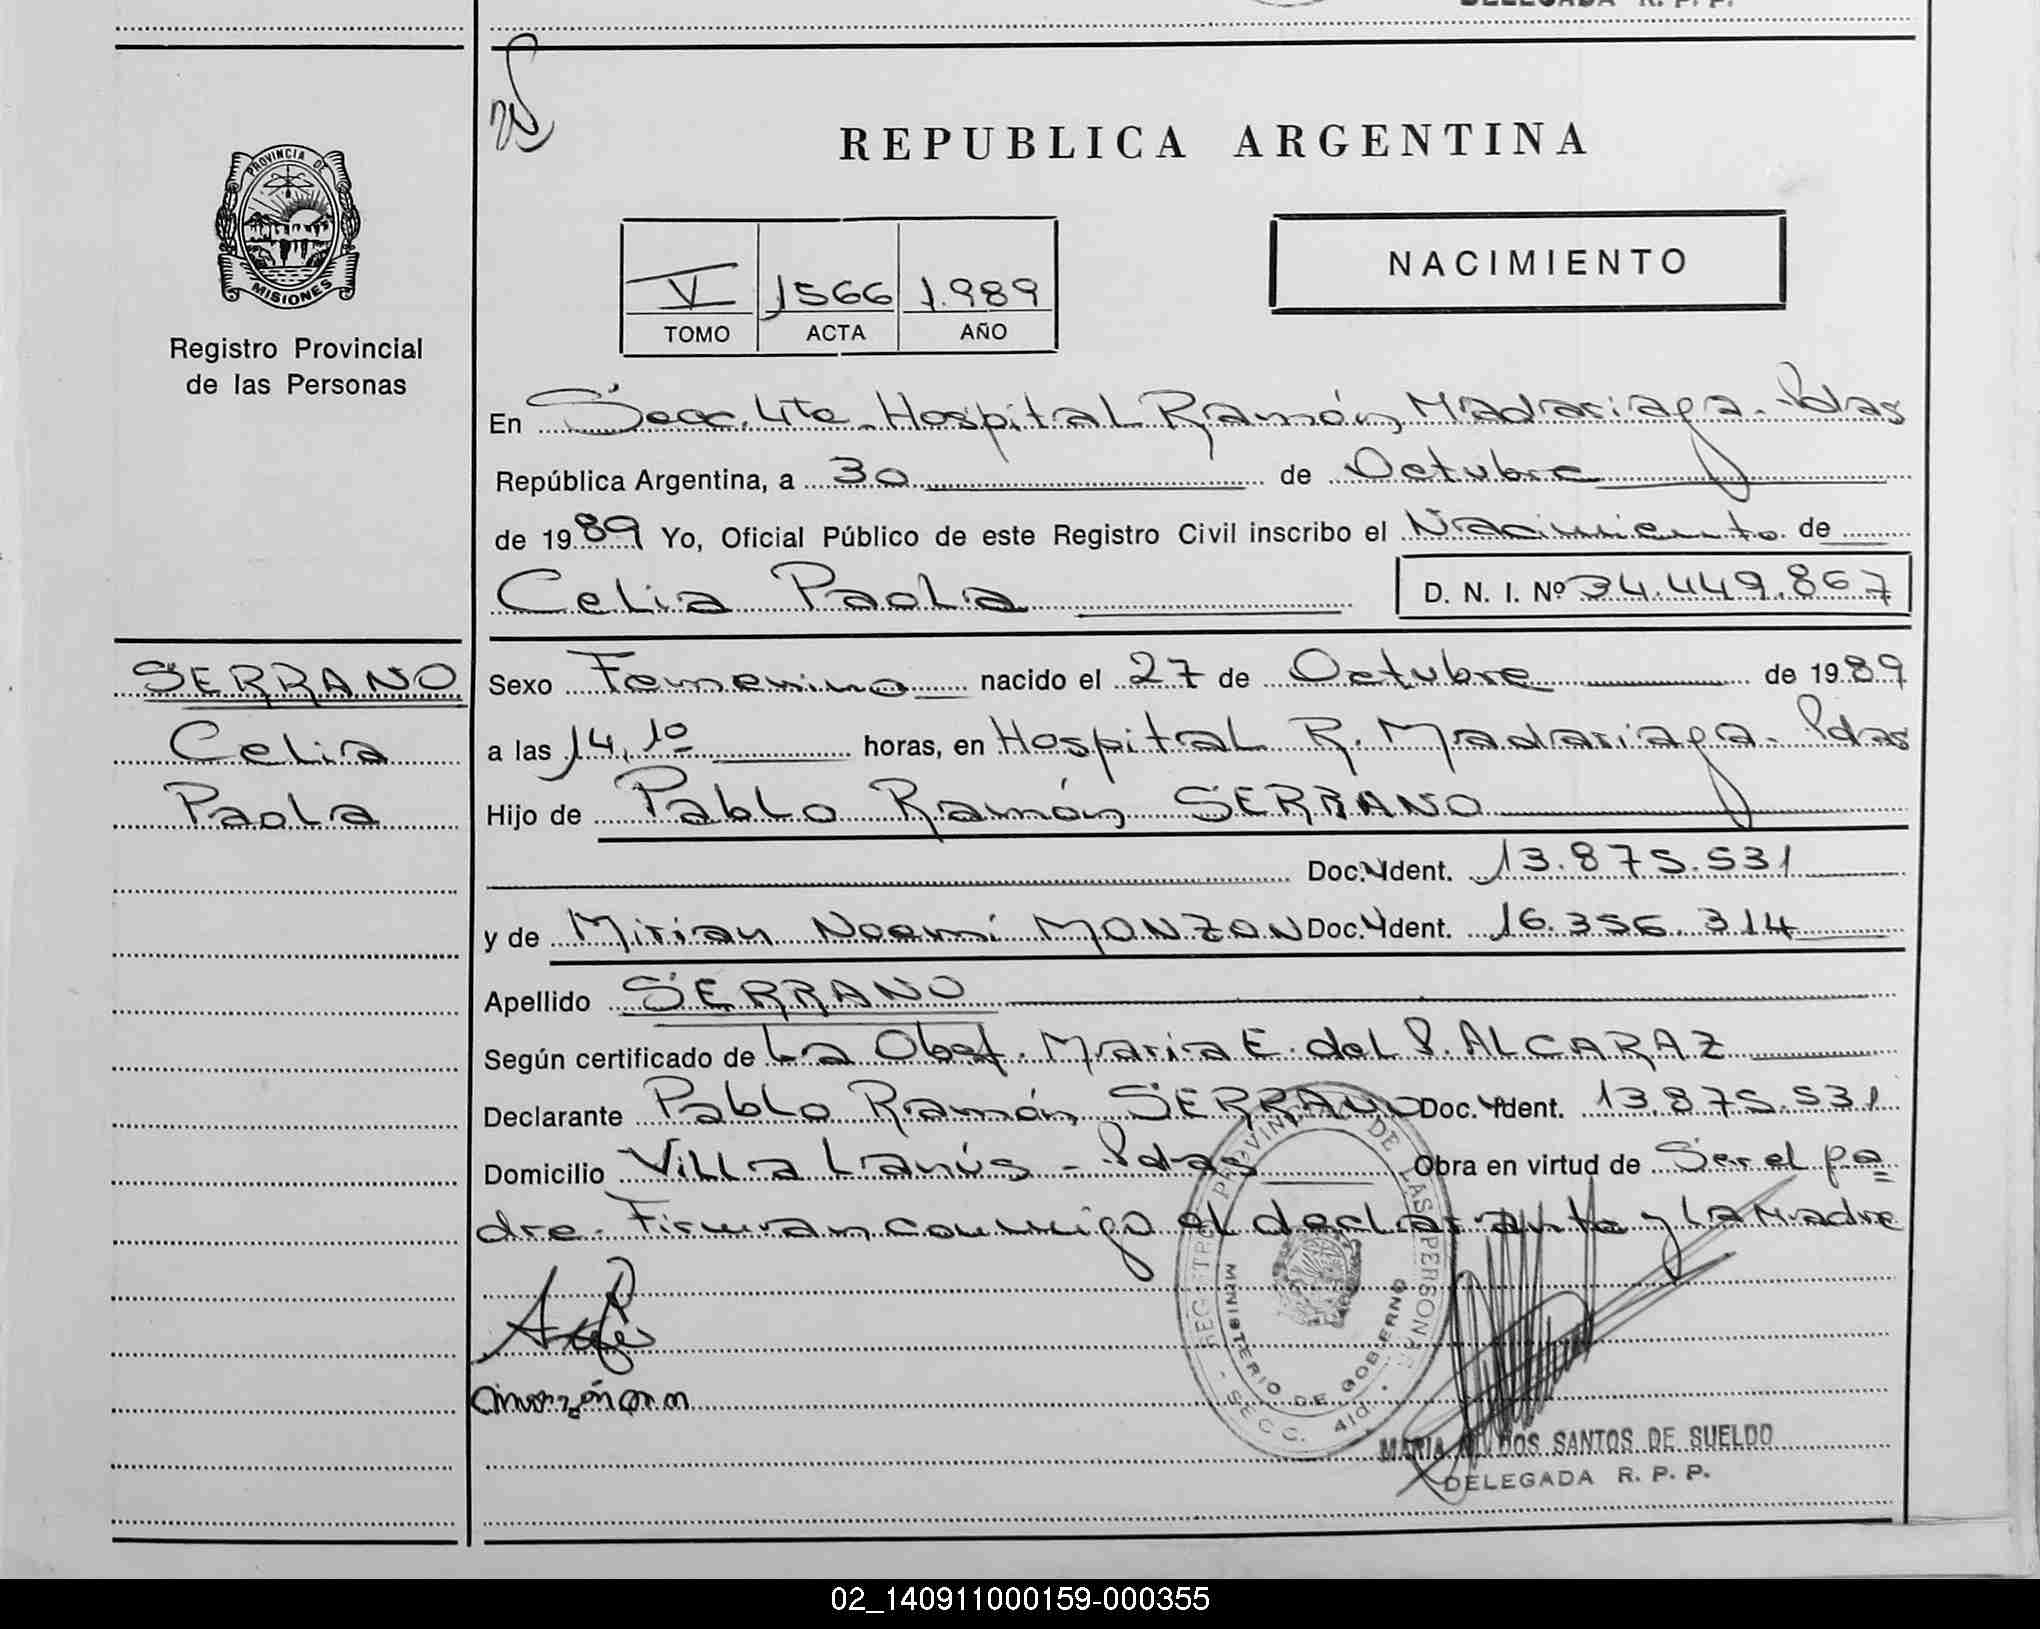 DELEGADA R. P. P.
PROVINCIA DE
MISIONES
Registro Provincial
de las Personas
REPUBLICA ARGENTINA
NACIMIENTO
V 1566 1.989
TOMO ACTA AÑO
En Secc. 4ta. Hospital Ramón Madariaga - Pdas
República Argentina, a 30 de Octubre
de 1989 Yo, Oficial Público de este Registro Civil inscribo el Nacimiento de
Celia Paola D. N. I. Nº 34.449.867
SERRANO
Celia
Paola
Sexo Femenino nacido el 27 de Octubre de 1989
a las 14,10 horas, en Hospital R. Madariaga - Pdas
Hijo de Pablo Ramón SERRANO
Doc. Ident. 13.875.531
y de Mirian Noemí MONZON Doc. Ident. 16.356.314
Apellido SERRANO
Según certificado de La Obst. Maria E. del P. ALCARAZ
Declarante Pablo Ramón SERRANO Doc. Ident. 13.875.531
Domicilio Villa Lanús - Pdas Obra en virtud de Ser el pa=
dre - Firman conmigo el declarante y la Madre
REGISTRO PROVINCIAL DE LAS PERSONAS
MINISTERIO DE GOBIERNO
- SECC. 4ta. -
MARIA DOS SANTOS DE SUELDO
DELEGADA R. P. P.
02_140911000159-000355